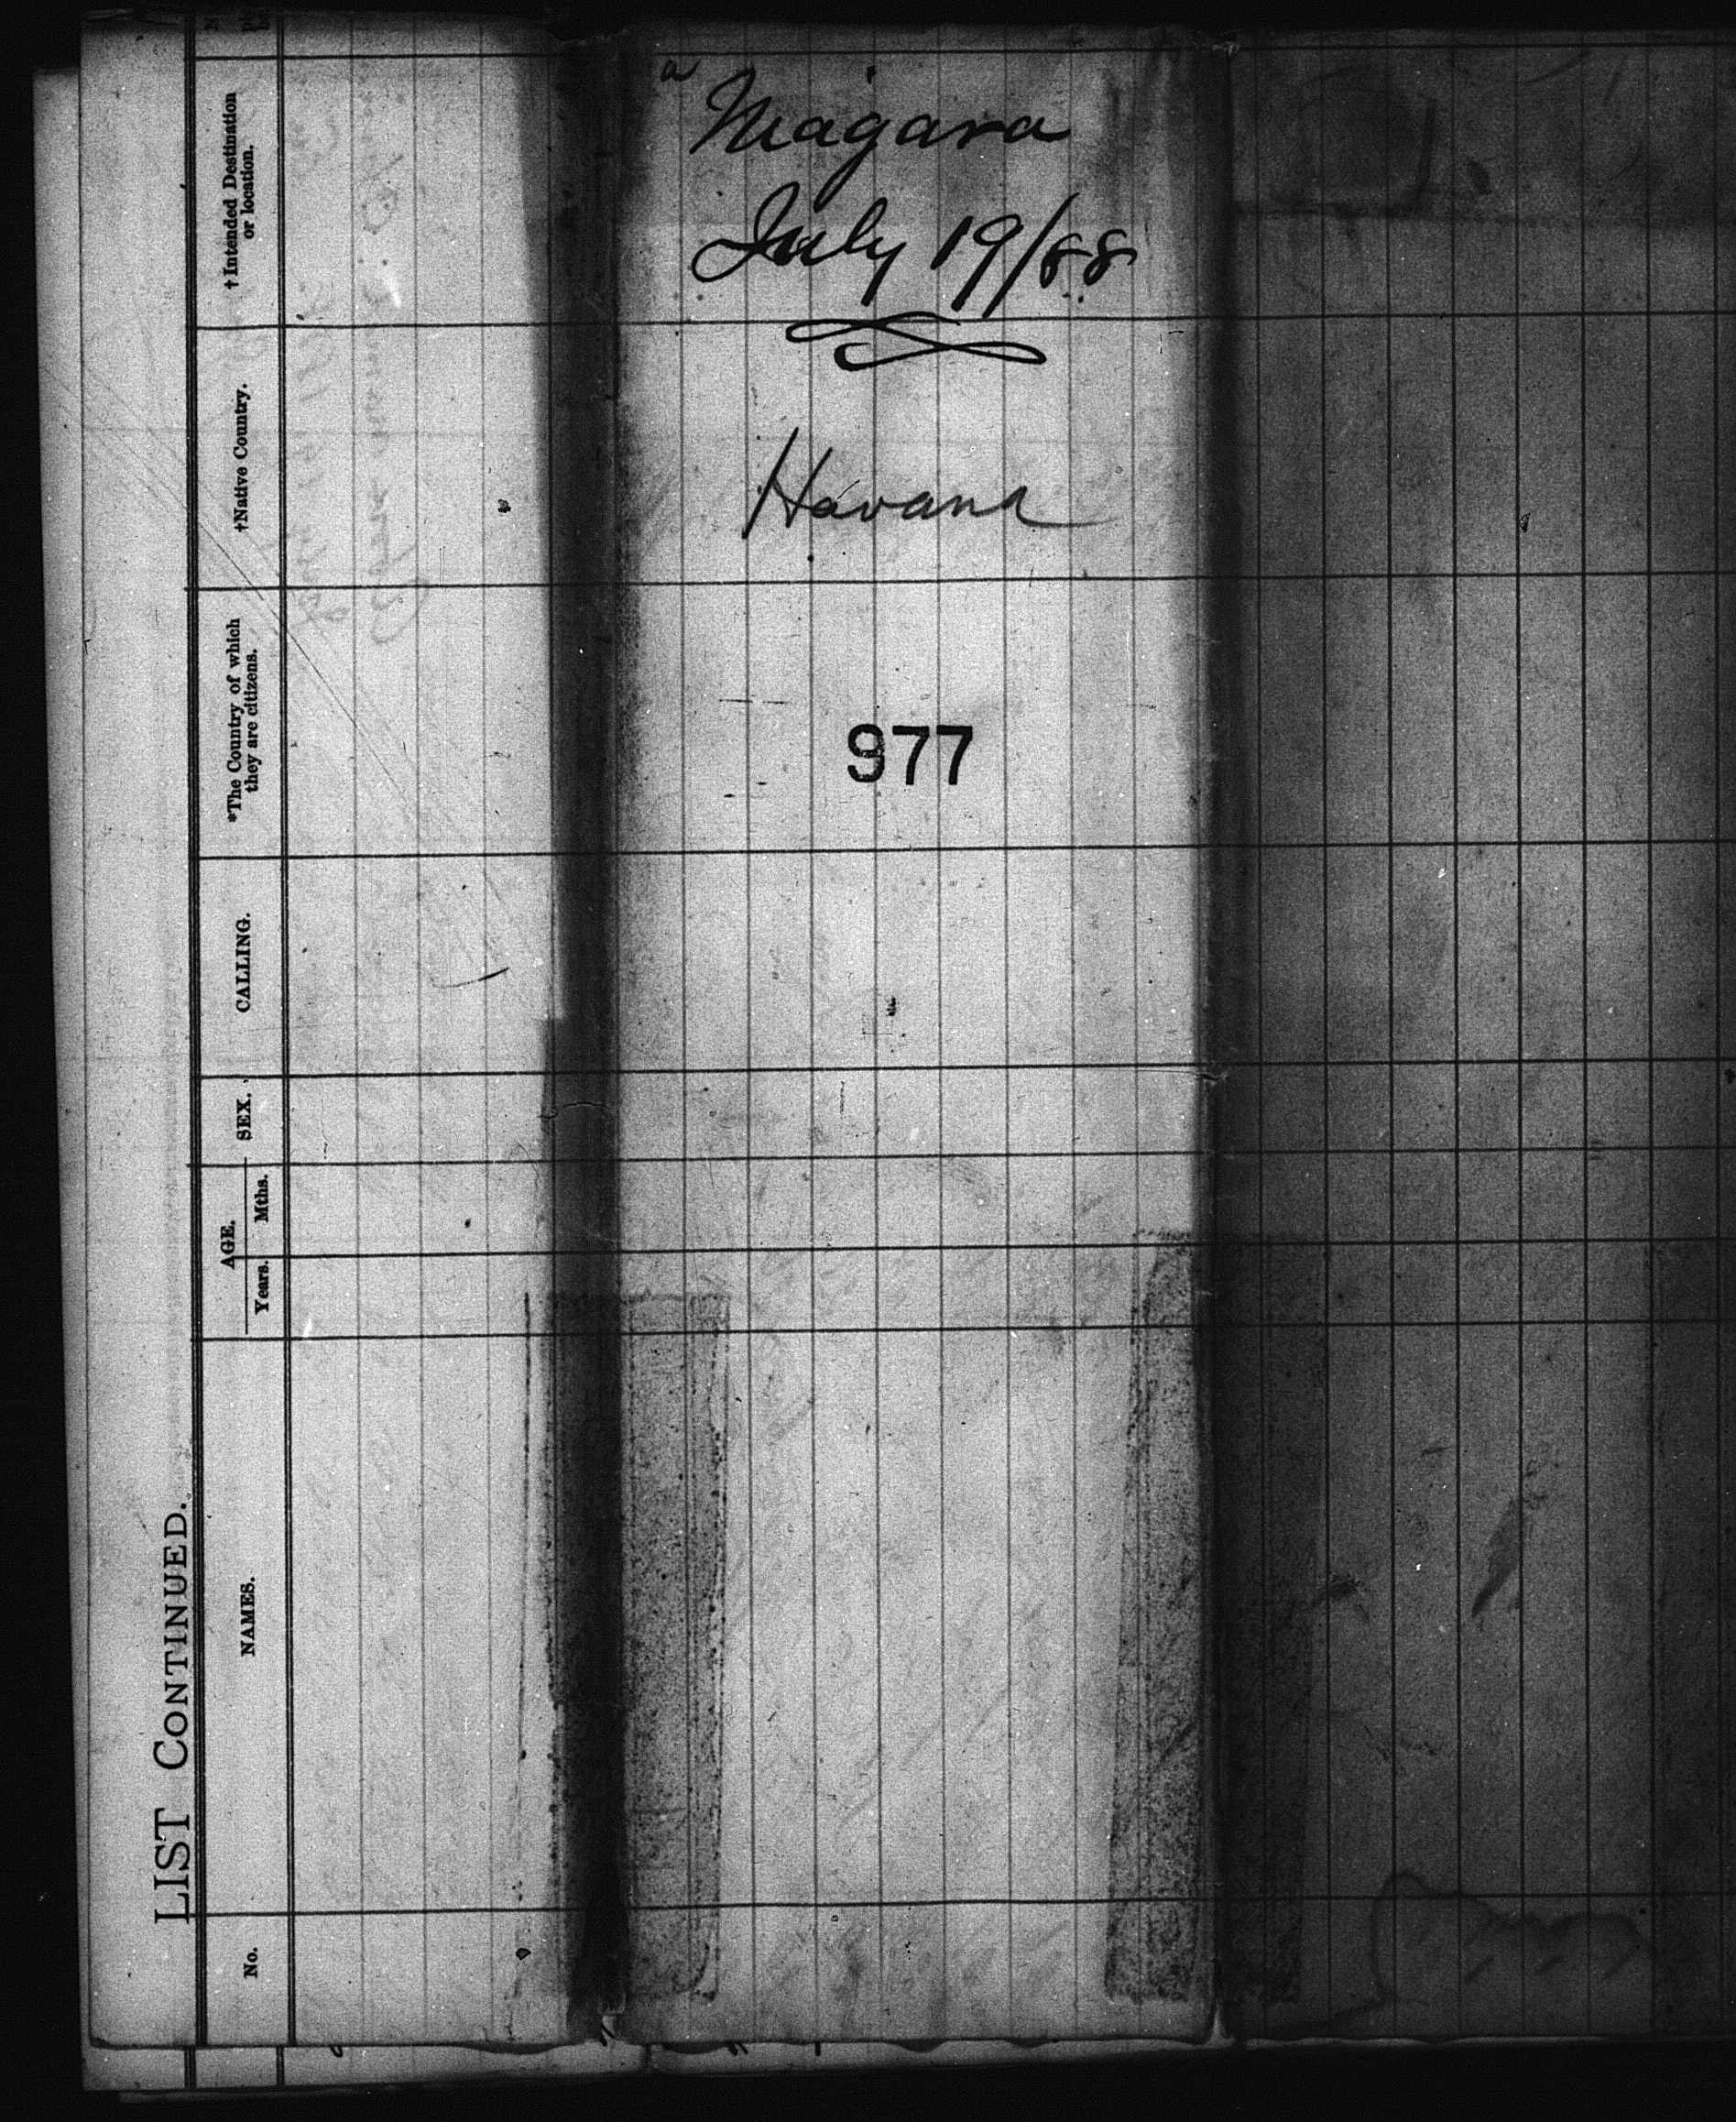 a
Niagara
July 19/88
Havana
977
LIST CONTINUED.
No.
NAMES.
AGE.
Years. Mths.
SEX.
CALLING.
*The Country of which
they are citizens.
†Native Country.
†Intended Destination
or location.